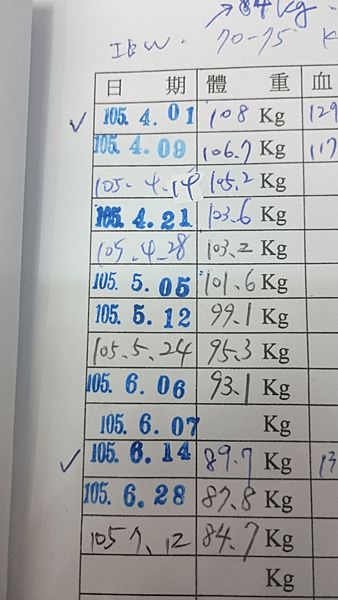 →84kg
IBW. 70-75 K
日 期 體 重 血
105. 4. 01 108 Kg 129
105. 4. 09 106.7 Kg 117
105. 4. 14 105.2 Kg
105. 4. 21 103.6 Kg
105. 4. 28 103.2 Kg
105. 5. 05 101.6 Kg
105. 5. 12 99.1 Kg
105. 5. 24 95.3 Kg
105. 6. 06 93.1 Kg
105. 6. 07 Kg
105. 6. 14 89.7 Kg 13
105. 6. 28 87.8 Kg
105 7. 12 84.7 Kg
Kg